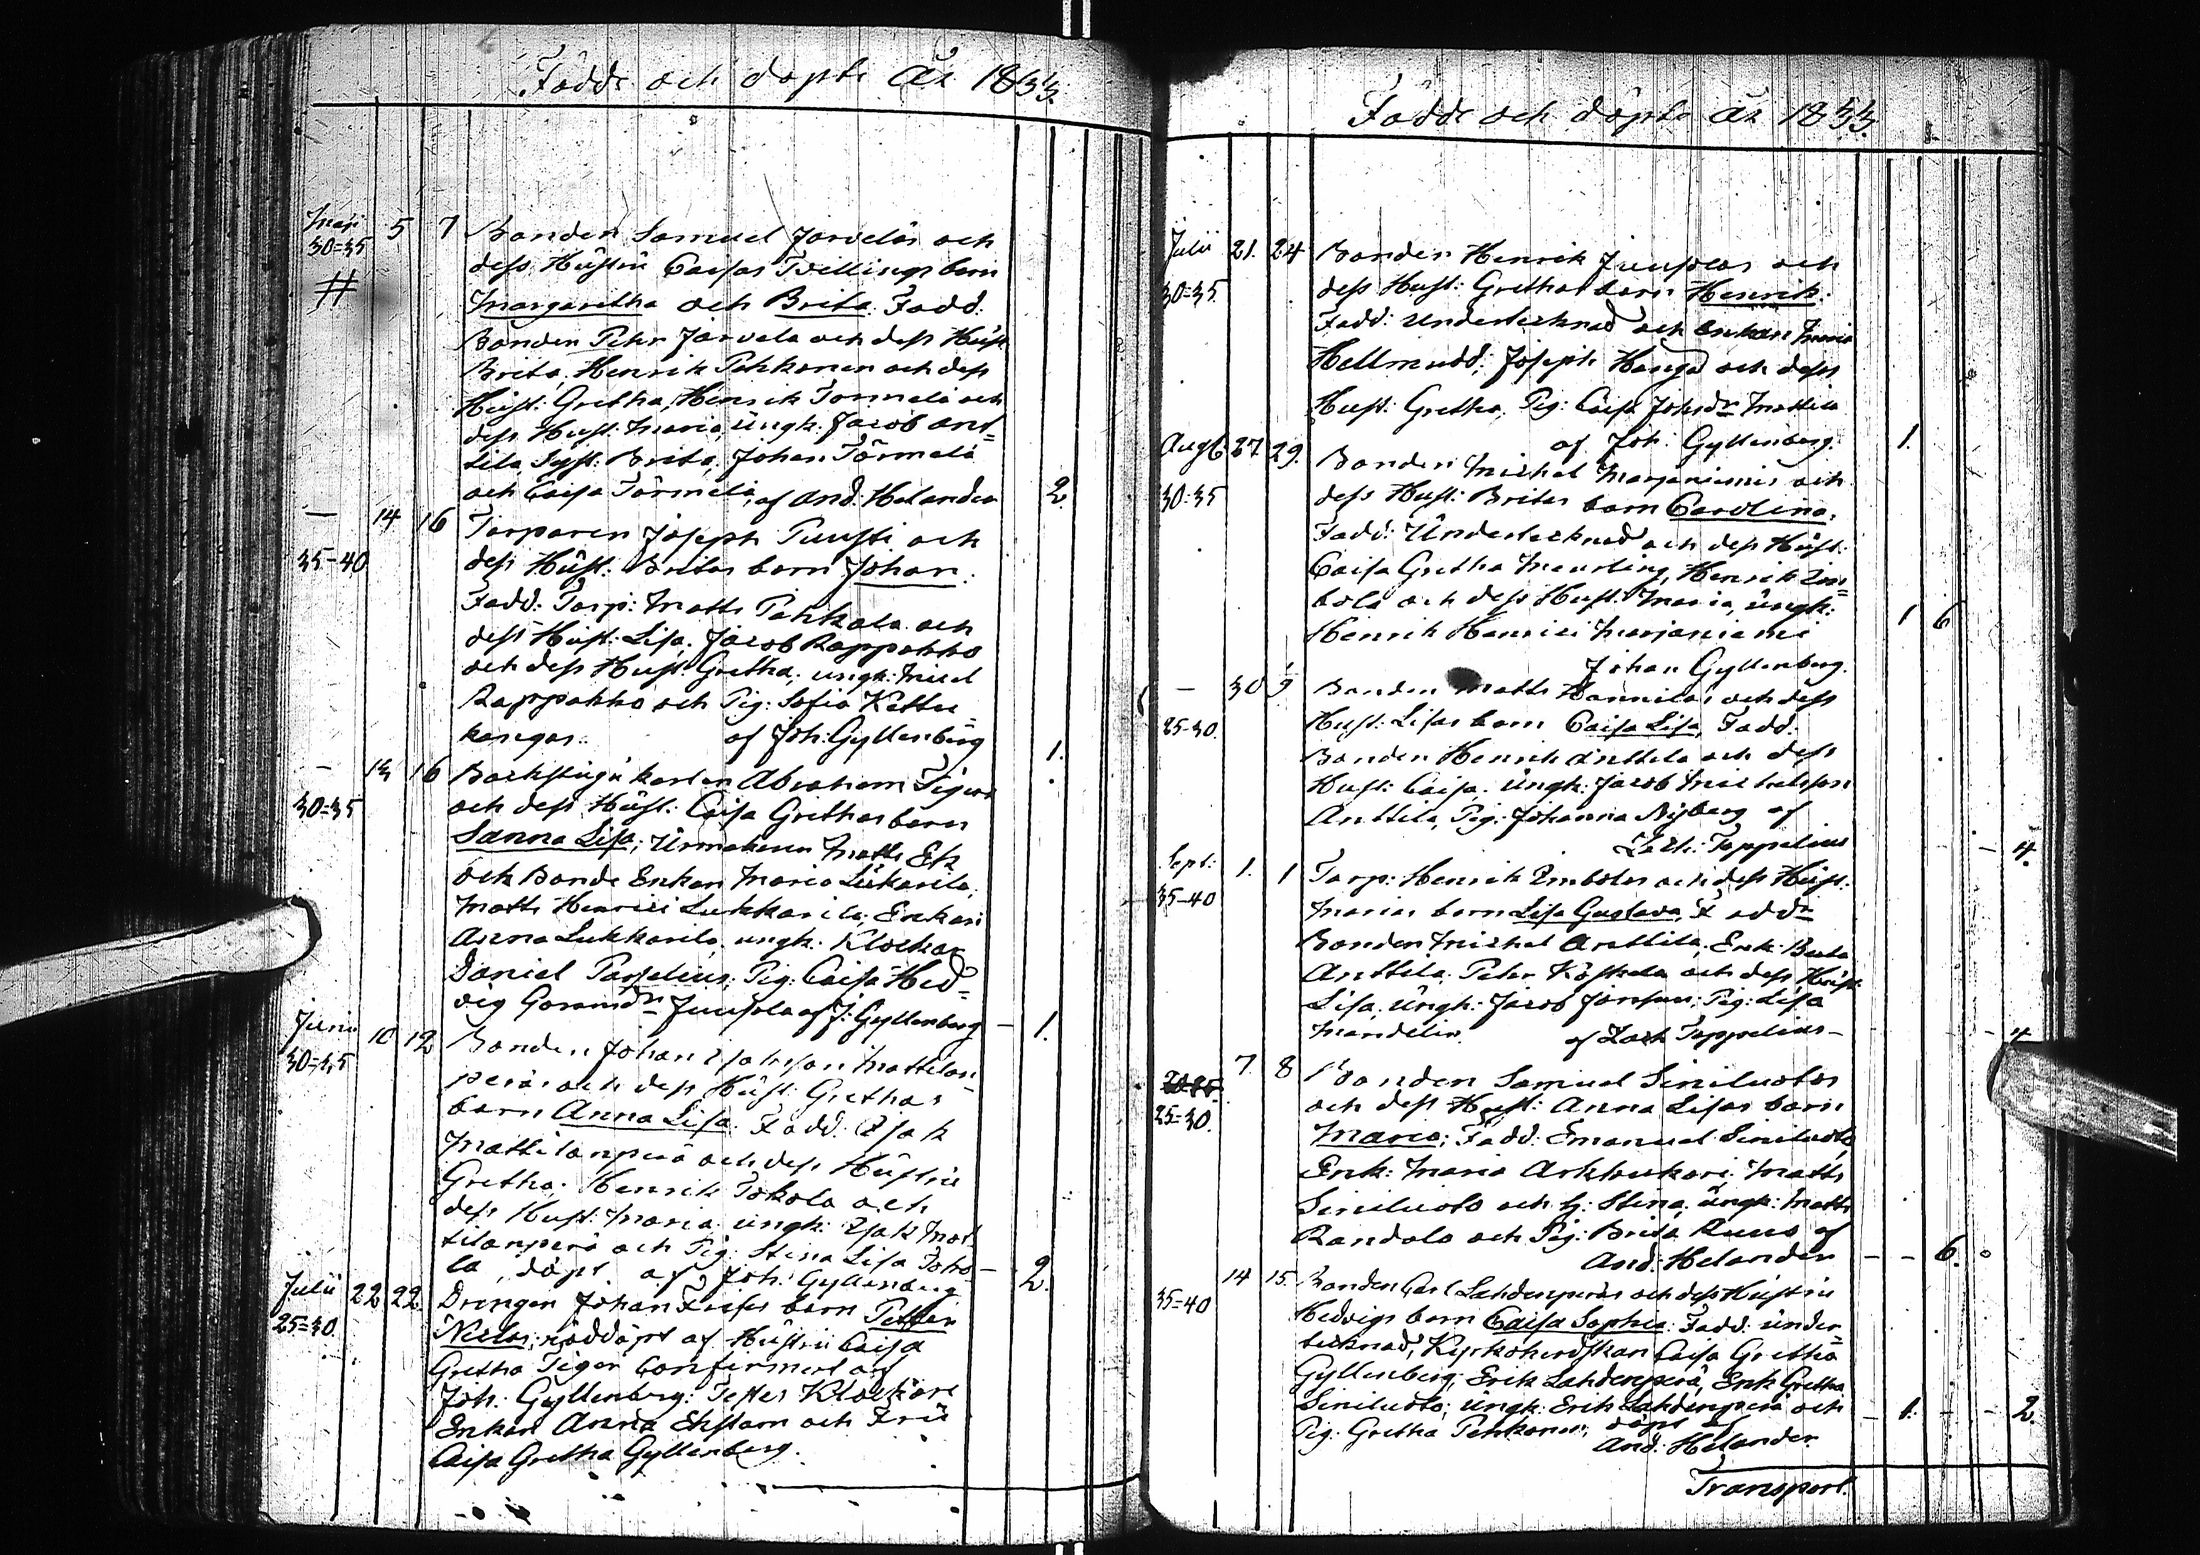 Födde och döpte År 1833.
Maji 5 7 Bonden Samuel Jarvelas och
30=35 dess Hustru Caisas Tvillings barn
# Margaretha och Brita. Fadd:
Bonden Peter Jarvela och dess Hust
Brita, Henrik Pehkonen och dess
Hust: Gretha, Henrik Tormelä och
dess Hust: Maria, ungk: Jacob Ant=
tila, Syst: Brita, Johan Törmelä
och Caisa Törmelä, af And: Helander 2.
— 14 16 Torparen Joseph Puusti och
35-40 dess Hust: Britas barn Johan.
Fadd: Torp: Matts Pahkala och
dess Hust: Lisa. Jacob Rappakko
och dess Hust: Gretha, ungk: Micel
Rappakko och Pig: Sofia Kettu=
kangas. af Joh: Gyllenberg 1.
— 13 16 Backstugu karlen Abraham Tiger
30=35 och dess Hust: Caisa Grethas barn
Sanna Lisa; Urmakaren Matts Ek
och Bonde Enkan Maria Lukkarila.
Matts Henrici Lukkarila. Enkan
Anna Lukkarila. ungk: Klockar
Daniel Pajselius, Pig: Caisa Hed=
vig Goransdr Juusola af J: Gyllenberg — 1.
Junii 10 12 Bonden Johan Isaksson Mattilan=
30=35 peräs och dess Hust: Grethas
barn Anna Lisa. Fadd: Isak
Mattilanperä och dess Hustru
Gretha. Henrik Tokola och
dess Hust: Maria. ungk: Isak Mat
tilanperä och Pig: Stina Lisa Toko=
la, döpt af Joh: Gyllenberg — 2.
Julii 22 22. Drengen Johan Frises barn Petter
25=30. Niclas, nöddöpt af Hustru Caisa
Gretha Tiger Confirmert af
Joh: Gyllenberg. Testes Klockare
Enkan Anna Ekstam och Fru
Caisa Gretha Gyllenberg.
Födde och döpte År 1833.
Julii 21. 24 Bonden Henrik Juusolas och
30=35. dess Hust: Grethas barn Henrik.
Fadd: Undertecknad och Enkan Maria
Hellmudd; Joseph Hanga och dess
Hust: Gretha, Pig: Caisa Johsdr Mattila
af Joh: Gyllenberg. 1.
Aug 27. 29. Bonden Michel Marjaniemis och
30=35 dess Hust: Britas barn Carolina.
Fadd: Undertecknad och dess Hust:
Caisa Gretha Meurling, Henrik Im=
bola och dess Hust: Maria, ungk:
Henrik Henrici Marjaniemi 1 6
Johan Gyllenberg.
— 30 Bonden Matts Hannilas och dess
25-30. Hust: Lisas barn Caisa Lisa, Fadd:
Bonden Henrik Anttila och dess
Hust: Caisa, ungk: Jacob Michelsson
Anttila, Pig: Johanna Nyberg af
Zach: Toppelius — 4.
Sept: 1. 1 Torp: Henrik Imbolas och dess Hust:
35-40 Marias barn Lisa Gustava, Faddr
Bonden Michel Anttila, Enk: Beata
Anttila. Peter Koskela och dess Hust:
Lisa, ungk: Jacob Jonsson; Pig: Lisa
Mandelin. af Zach Toppelius — 4
7. 8 Bonden Samuel Siniluotos
25=30. och dess Hust: Anna Lisas barn
Maria; Fadd: Emanuel Siniluoto
Enk: Maria Arkkukari Matts
Siniluoto och h: Stina, ungk: Matts
Randala och Pig: Brita Ruus af
And: Helander — — 6.
14 15. Bonden Carl Lahdenperäs och dess Hustru
35=40 Hedvigs barn Caisa Sophia. Fadd: under=
tecknad, Kyrkoherdskan Caisa Gretha
Gyllenberg, Erik Lahdenperä, Enk Gretha
Siniluoto, ungk: Erik Lahdenperä och
Pig: Gretha Pehkonen, döpt af — 1. — — 2.
And: Helander
Transport.